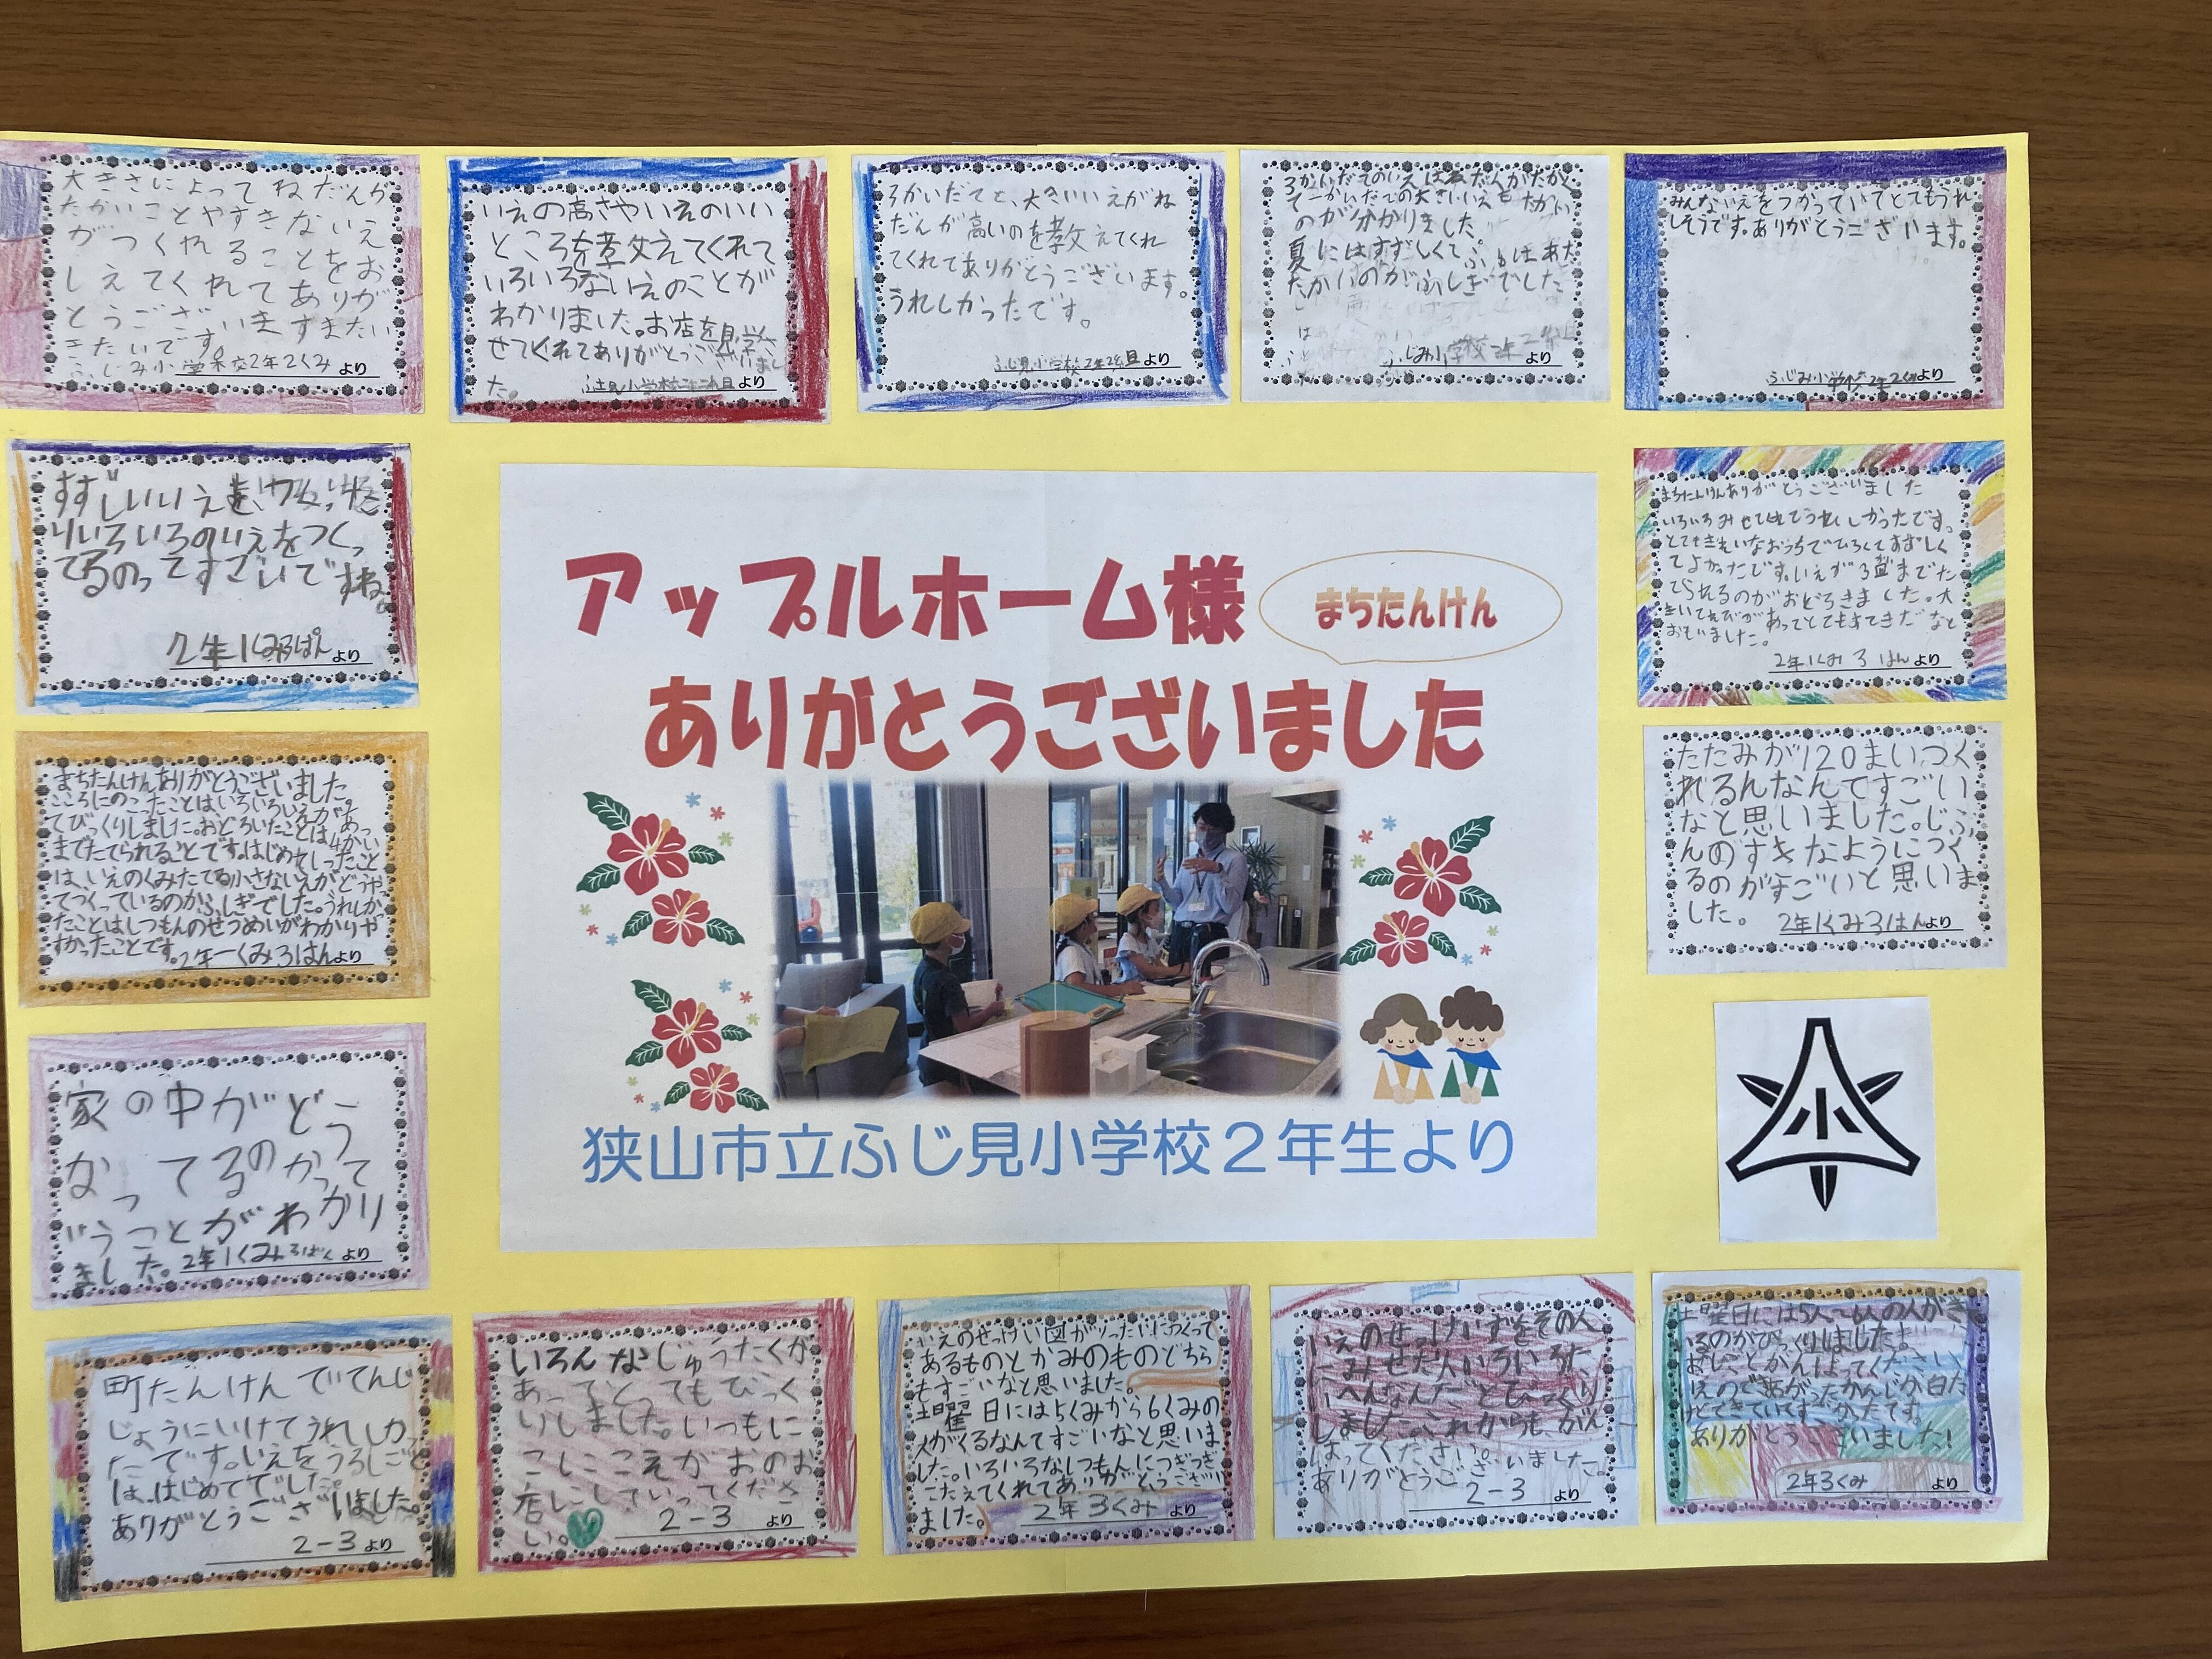 大きさによってねだんが
たかいことやすきないえ
がつくれることをお
しえてくれてありが
とうございます。またい
きたいです。
ふじみ小学校2年2くみより
いえの高さやいえのいい
ところを教えてくれて
いろいろないえのことが
わかりました。お店を見学さ
せてくれてありがとうございまし
た。
より
3かいだてと、大きいいえがね
だんが高いのを教えてくれ
てくれてありがとうございます。
うれしかったです。
ふじ見小学校2年2組より
3かいだてのいえはねだんがたかく
て一かいだての大きいいえもたかい
のが分かりました。
夏にはすずしくてふゆはあた
たかいのがふしぎでした
ふじみ小学校2年2組より
みんないえをつかっていてとてもうれ
しそうです。ありがとうございます。
ふじみ小学校2年2くみより
すずしいいえを
りいろいろのいえをつくっ
てるのってすごいですね。
2年1くみ3ぱんより
アップルホーム様
まちたんけん
ありがとうございました
狭山市立ふじ見小学校2年生より
まちたんけんありがとうございました
いろいろみせてくれてうれしかったです。
とてもきれいなおうちでひろくてすずしく
てよかったです。いえが3階までた
てられるのがおどろきました。大
きいてれびがあってとてもすてきだなと
おもいました。
2年1くみ3はんより
まちたんけんありがとうございました。
こころにのこったことはいろいろいえがあっ
てびっくりしました。おどろいたことは4かい
までたてられることです。はじめてしったこと
は、いえのくみたてる小さないえがどうや
てつくっているのかふしぎでした。うれしかっ
たことはしつもんのせつめいがわかりや
すかったことです。2年一くみ3はんより
たたみが120まいつく
れるんなんてすごい
なと思いました。じぶ
んのすきなようにつく
るのがすごいと思いま
した。2年1くみ3はんより
家の中がどう
なってるのかって
いうことがわかり
ました。2年1くみ3ぱんより
小
町たんけんでてんじ
じょうにいけてうれしかっ
たです。いえをうるしごと
は、はじめてでした。
ありがとうございました。
2-3より
いろんなじゅうたくが
あってとってもびっく
りしました。いつもに
こにこえがおのお
店にしていってくださ
い。
2-3より
いえのせっけい図がツったいにつくって
あるものとかみのものどちら
もすごいなと思いました。
土曜日には5くみから6くみの
人がくるなんてすごいなと思いま
した。いろいろなしつもんにつぎつぎ
こたえてくれてありがとうござい
ました。2年3くみより
いえのせっけいずをその人
にみせたんいろいろた
いへんなんだとびっくり
しました。これからも、がん
ばってください。
ありがとうございました。
2-3より
土曜日には5人~6人の人がき
いるのがびっくりしました。
おしごとがんばってください
いえのできあがったかんじが白だ
けでできていてすごかったです。
ありがとうございました!
2年3くみより